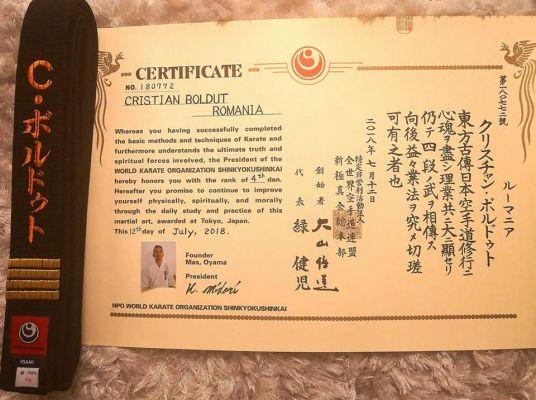 C・ボルドゥト
ISAMI
CERTIFICATE
NO. 180772
CRISTIAN BOLDUT
ROMANIA
Whereas you having successfully completed
the basic methods and techniques of Karate and
furthermore understands the ultimate truth and
spiritual forces involved, the President of the
WORLD KARATE ORGANIZATION SHINKYOKUSHINKAI
hereby honors you with the rank of 4th dan.
Hereafter you promise to continue to improve
yourself physically, spiritually, and morally
through the daily study and practice of this
martial art, awarded at Tokyo, Japan.
This 12th day of July, 2018.
Founder
Mas, Oyama
President
K. Midori
NPO WORLD KARATE ORGANIZATION SHINKYOKUSHINKAI
第一八〇七七二號
ルーマニア
クリスチャン・ボルドゥト
東方古傳日本空手道修行ニ
心魂ヲ盡シ理業共ニ大ニ顕セリ
仍テ四段ノ武ヲ相傳ス
向後益々業法ヲ究メ切瑳
可有之者也
二〇一八年七月十二日
特定非営利活動法人
全世界空手道連盟
新極真会総本部
創始者 大山倍達
代表 緑健児